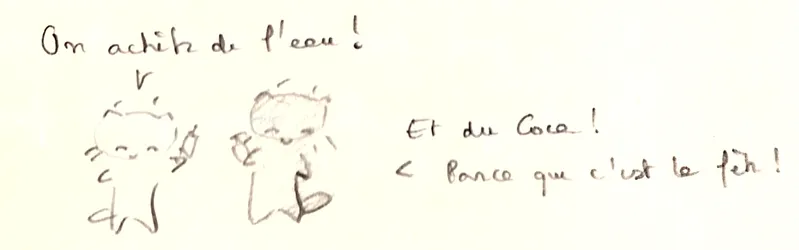 On achète de l'eau !
Et du Coca !
Parce que c'est la fête !